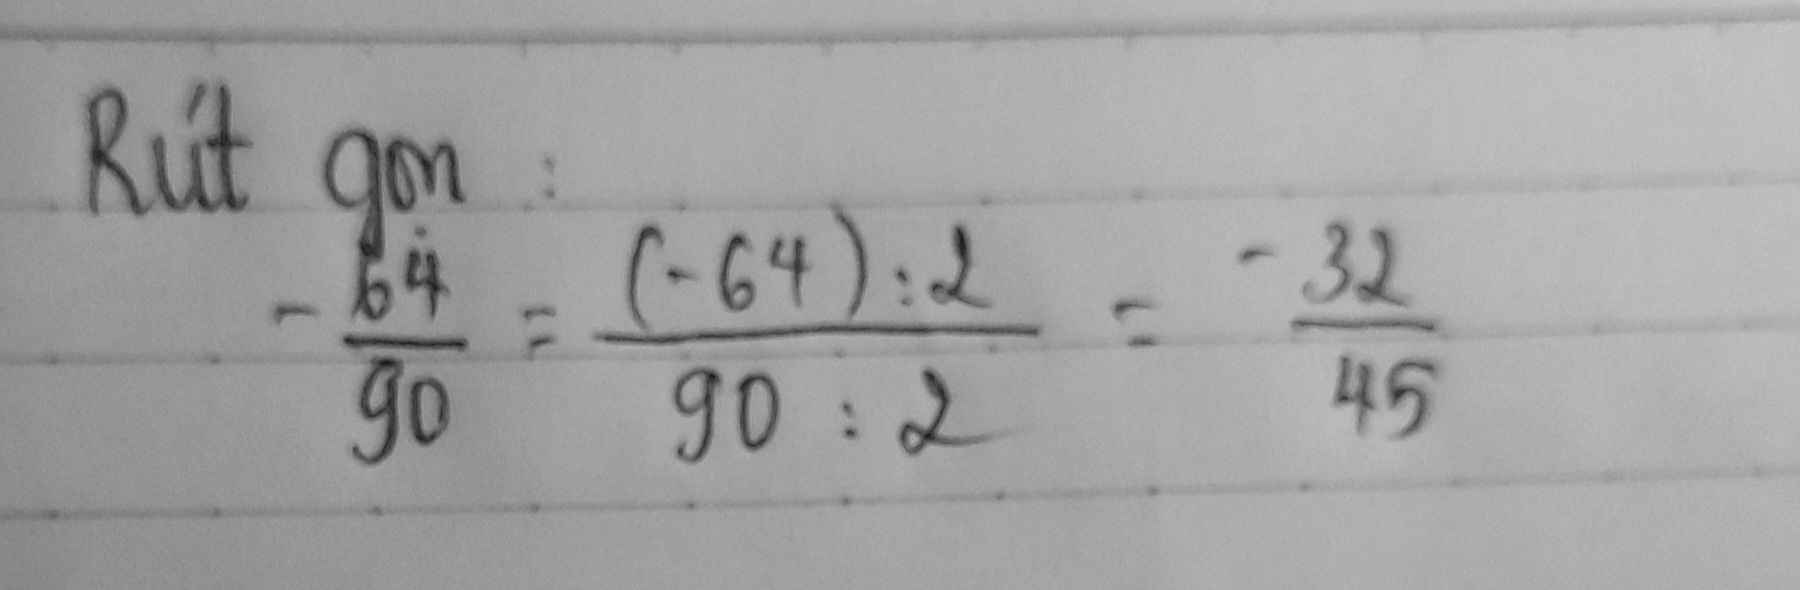 Rút gọn :
- 64/90 = (-64) : 2 / 90 : 2 = -32/45